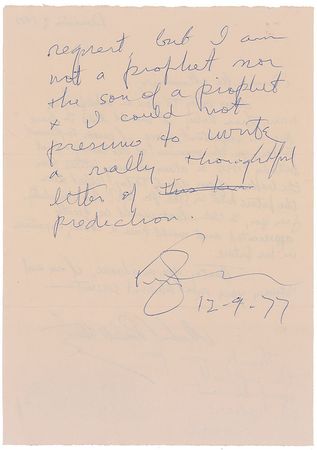 request, but I am
not a prophet nor
the son of a prophet
+ I could not
presume to write
a really thoughtful
letter of this kin
prediction.
12-9-77